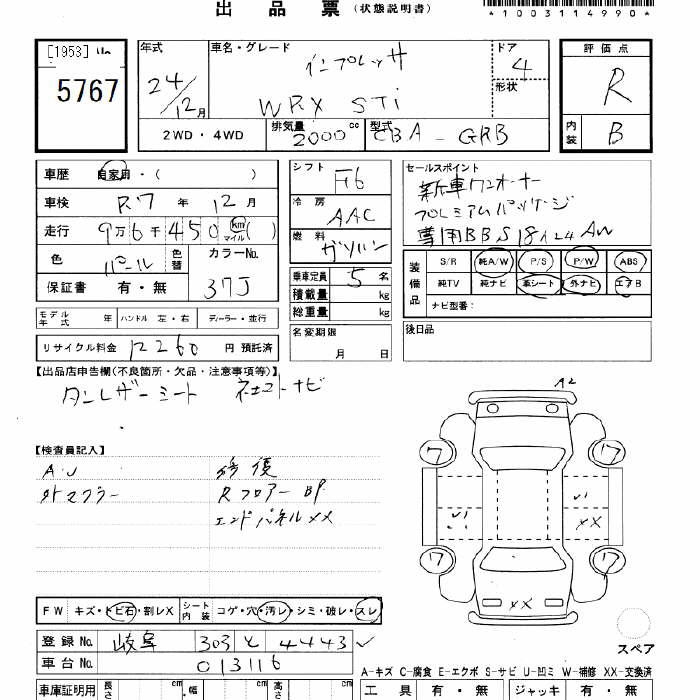 出 品 票 (状態説明書)
*1003114990*
[1953]
5767
年式 24/12月
車名・グレード インプレッサ
WRX STi
ドア 4
形状
2WD・4WD
排気量 2000 cc
型式 CBA - GRB
評価点 R
内装 B
車歴 自家用・( )
車検 R7 年 12 月
走行 9万6千450 km マイル ( )
色 パール 色替 カラーNo. 37J
保証書 有・無
シフト F6
冷房 AAC
燃料 ガソリン
乗車定員 5 名
積載量 kg
総重量 kg
名変期限 月 日
セールスポイント
新車ワンオーナー
プレミアムパッケージ
専用BBS 18インチ AW
装備品 S/R 純A/W P/S P/W ABS
純TV 純ナビ 革シート 外ナビ エアB
ナビ型番:
後日品
モデル年式 年 ハンドル 左・右 ディーラー・並行
リサイクル料金 12260 円 預託済
【出品店申告欄(不良箇所・欠品・注意事項等)】
タンレザーシート ネクストナビ
A2
【検査員記入】
外マフラー
修復
Rフロアー BP
エンドパネルXX
ワ ワ
XX
ワ ワ
XX
スペア
FW キズ・トビ石・割レX シート内装 コゲ・穴・汚レ・シミ・破レ・スレ
登録No. 岐阜 303 と 4443
車台No. 013116
A-キズ C-腐食 E-エクボ S-サビ U-凹ミ W-補修 XX-交換済
車庫証明用 長さ cm ・幅 cm 高さ cm
工具 有・無 ジャッキ 有・無